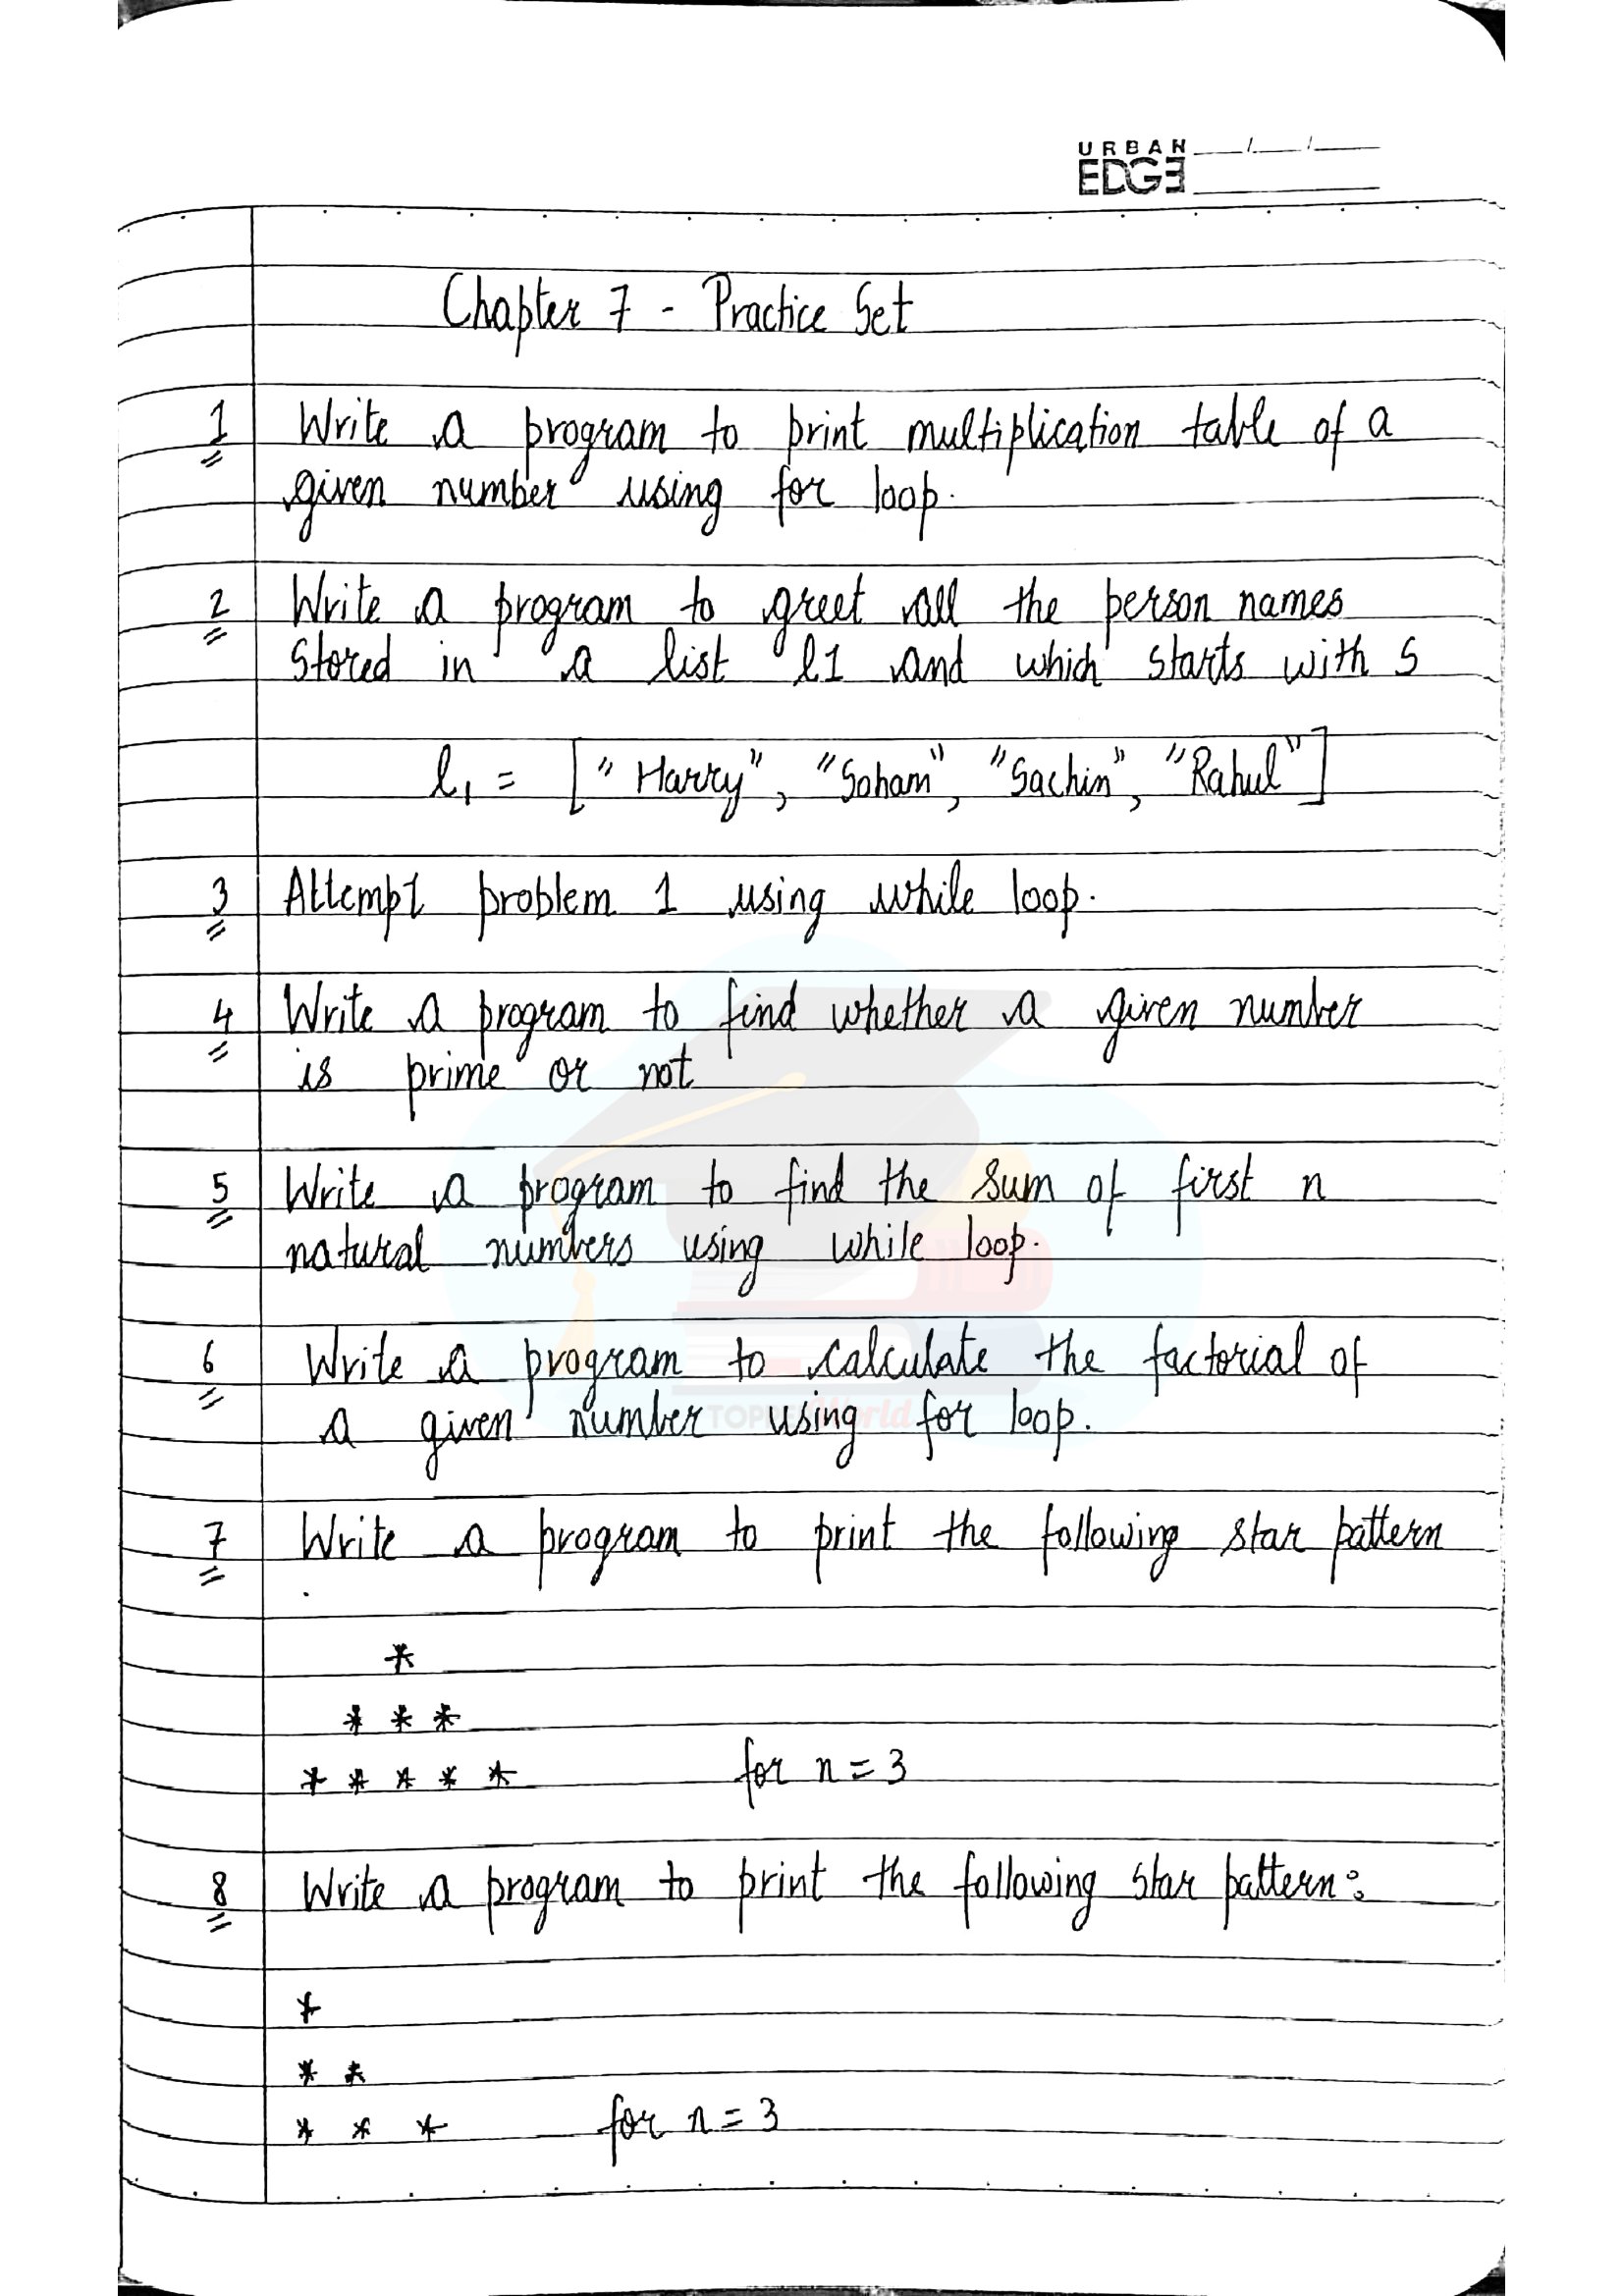 URBAN
EDGE
Chapter 7 - Practice Set
1 Write a program to print multiplication table of a
given number using for loop.
2 Write a program to greet all the person names
Stored in a list l1 and which starts with S
l1 = ["Harry", "Soham", "Sachin", "Rahul"]
3 Attempt problem 1 using while loop.
4 Write a program to find whether a given number
is prime or not
5 Write a program to find the Sum of first n
natural numbers using while loop.
6 Write a program to calculate the factorial of
a given number using for loop.
TOPPERWorld
7 Write a program to print the following star pattern
*
* * *
* * * * * for n = 3
8 Write a program to print the following star pattern:
*
* *
* * * for n = 3